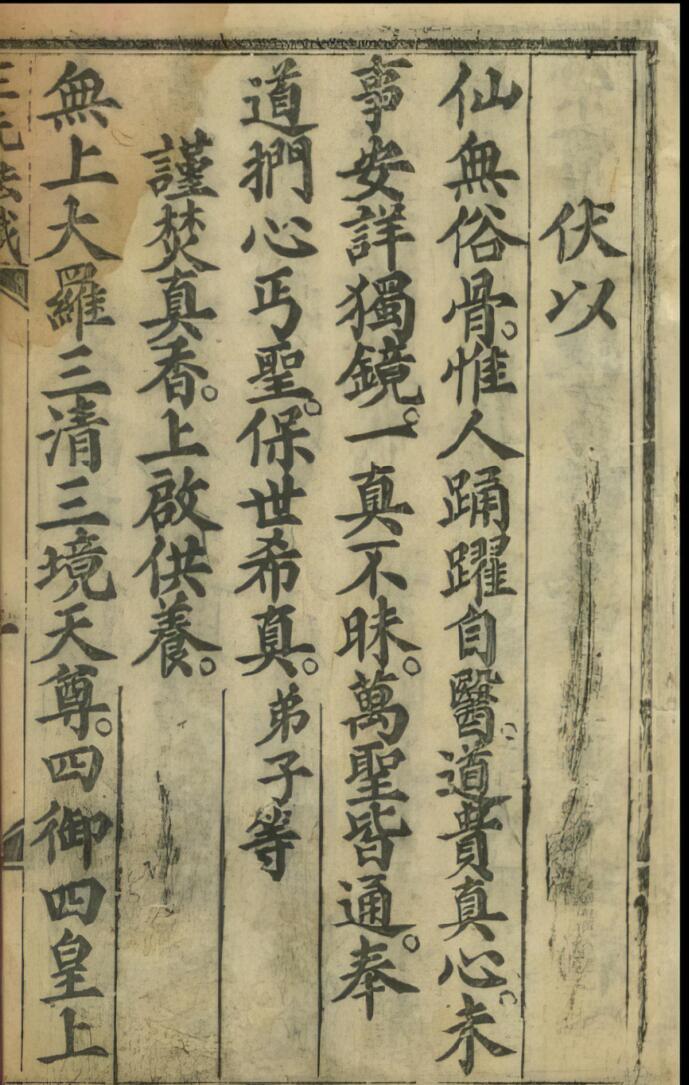 伏以
仙無俗骨。惟人踊躍自醫。道費真心。未
事安詳獨鏡。一真不昧。萬聖皆通。奉
道捫心丐聖。保世希真。弟子等
謹焚真香。上啟供養。
無上大羅三清三境天尊。四御四皇上